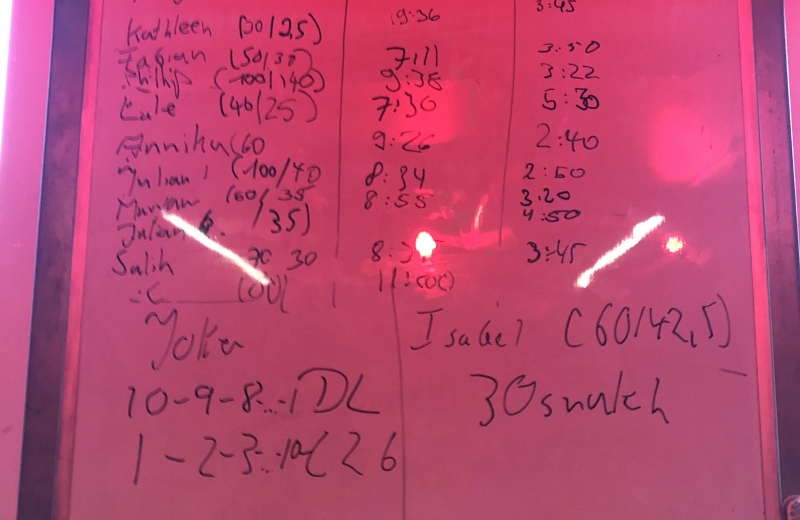 3:45
Kathleen (30/25) 19:36
Fabian (50/30) 7:11 3:50
Philip (100/40) 9:38 3:22
Eule (40/25) 7:30 5:30
Annika (60 9:26 2:40
Julian (100/40 8:34 2:50
(60/35 8:55 3:20
Julian /35) 4:50
Salih 70 30 8: 3:45
Joker
10-9-8...1 DL
1-2-3...10
Isabel (60/42,5)
30 snatch